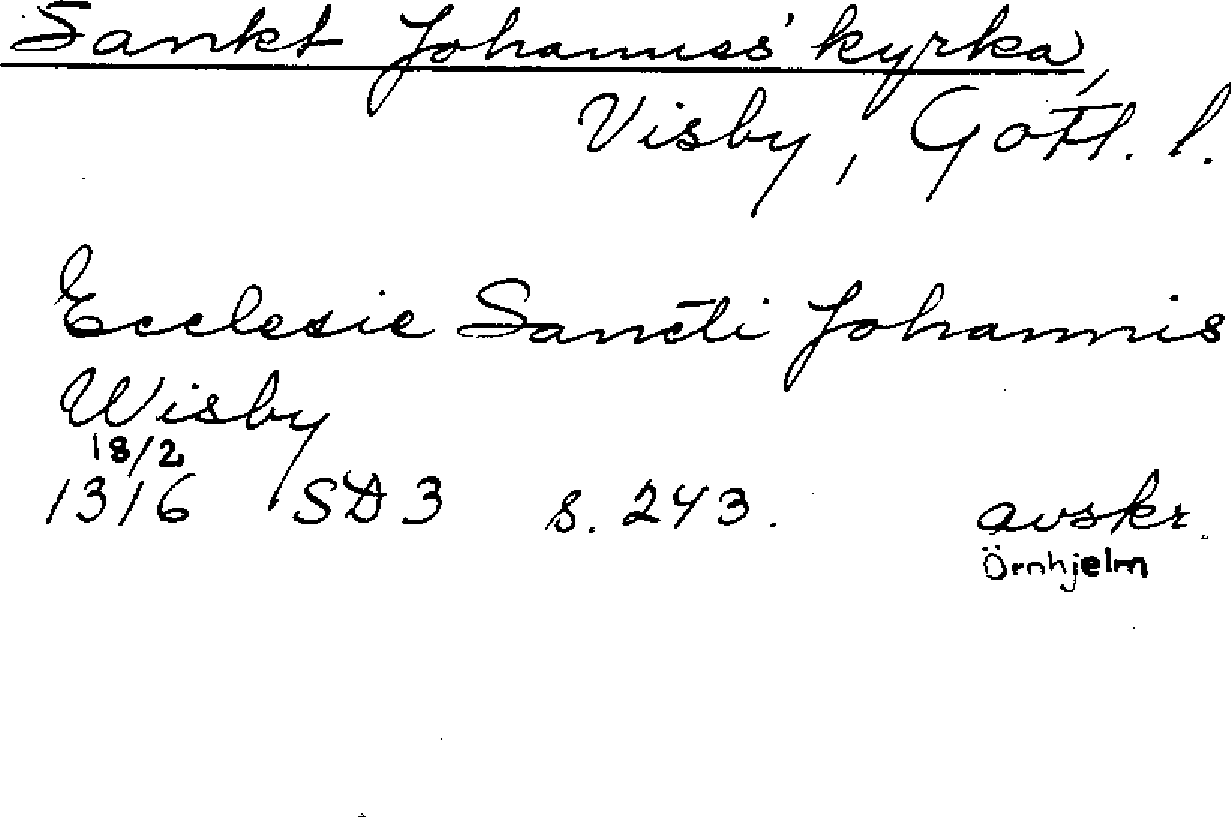 Sankt Johannes' kyrka,
Visby, Gotl. l.
Ecclesie Sancti Johannis
Wisby
18/2
1316 SD 3 s. 243. avskr.
Örnhjelm